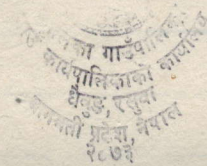 गाउँपालिका
गाउँ कार्यपालिकाको कार्यालय
धैबुङ, रसुवा
बागमती प्रदेश, नेपाल
२०७३